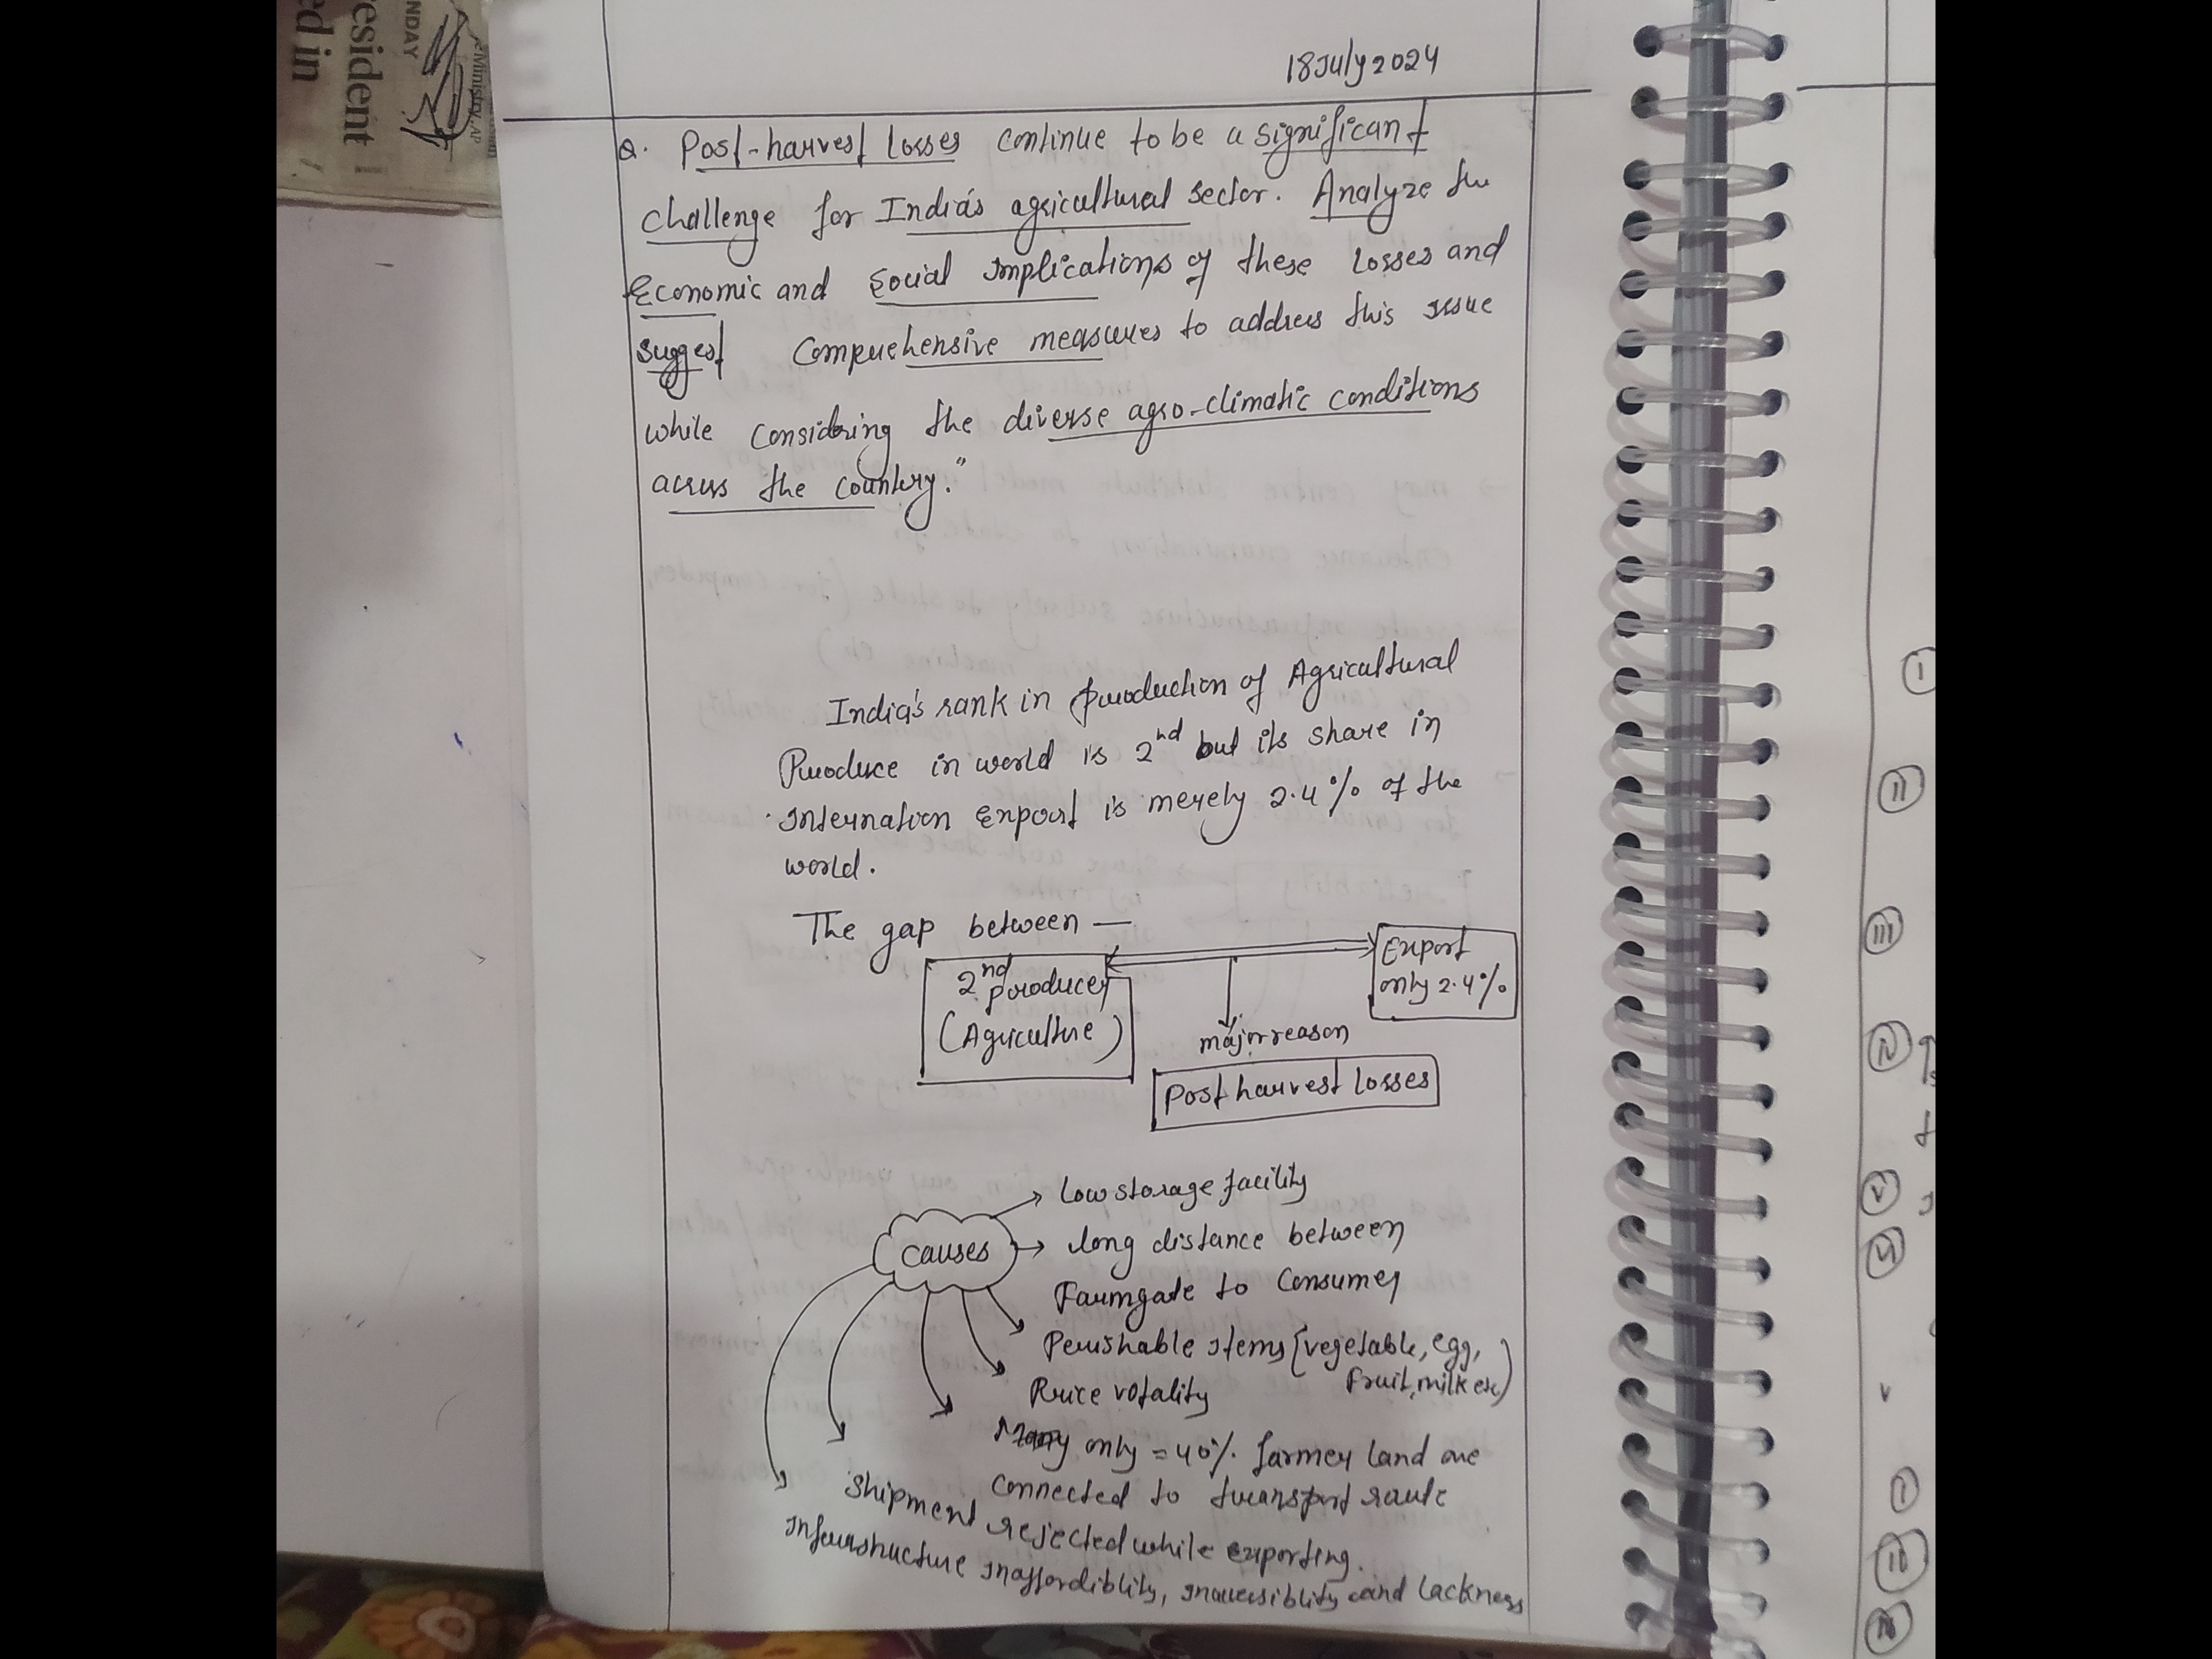 resident
ed in
NDAY
eMinistry, AP
18 July 2024
Q. Post-harvest losses continue to be a significant
challenge for India's agricultural sector. Analyze the
Economic and Social Implications of these losses and
suggest comprehensive measures to address this issue
while considering the diverse agro-climatic conditions
across the country."
India's rank in production of Agricultural
Produce in world is 2nd but its share in
Internation Export is merely 2.4% of the
world.
The gap between —
2nd producer
(Agriculture)
Export
only 2.4%
major reason
Post harvest losses
causes
→ low storage facility
→ long distance between
Farmgate to consumer
Perishable items (vegetable, egg,
fruit, milk etc)
Price votality
only = 40% farmer land are
connected to transport route
Shipment rejected while exporting.
Infrastructure Inaffordiblity, Inaccessiblity and lackness
I
II
III
IV
V
VI
I
II
III